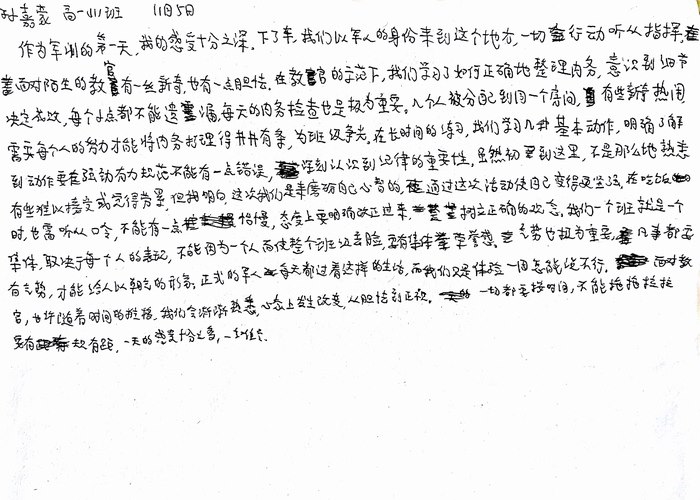 孙嘉豪 高一(11)班 11月5日
作为军训的第一天,我的感受十分之深。下了车,我们以军人的身份来到这个地方,一切行动听从指挥,
面对陌生的教官有一丝新奇,也有一点胆怯。在教官的示范下,我们学习了如何正确地整理内务,意识到细节
决定成败,每个点都不能遗漏,每天的内务检查也是极为重要。几个人被分配到同一个房间,有些新奇,热闹
需要每个人的努力才能将内务打理得井井有条,为班级争光。在长时间的练习,我们学习几井基本动作,明确了解
到动作要强劲有力规范不能有一点错误,深刻认识到纪律的重要性。虽然初到这里,不是那么地熟悉
有些难以接受或觉得劳累,但我明白,这次我们是来磨砺自己心智的,通过这次活动使自己变得更坚强。在吃饭
时,也需听从口令,不能有一点怠慢,态度上要明确改正过来,树立正确的观念。我们一个班就是一个
集体,取决于每个人的表现,不能因为一个人而使整个班级丢脸,要有集体荣誉感。气势也极为重要,凡事都要
有气势,才能给人以朝气的形象。正式的军人每天都过着这样的生活,而我们只是体验一周怎能说不行。面对教
官,也许随着时间的推移,我们会渐渐熟悉,心态上发生改变,从胆怯到正视。一切都要择时间,不能拖拖拉拉
要有规有距,一天的感受十分之多,